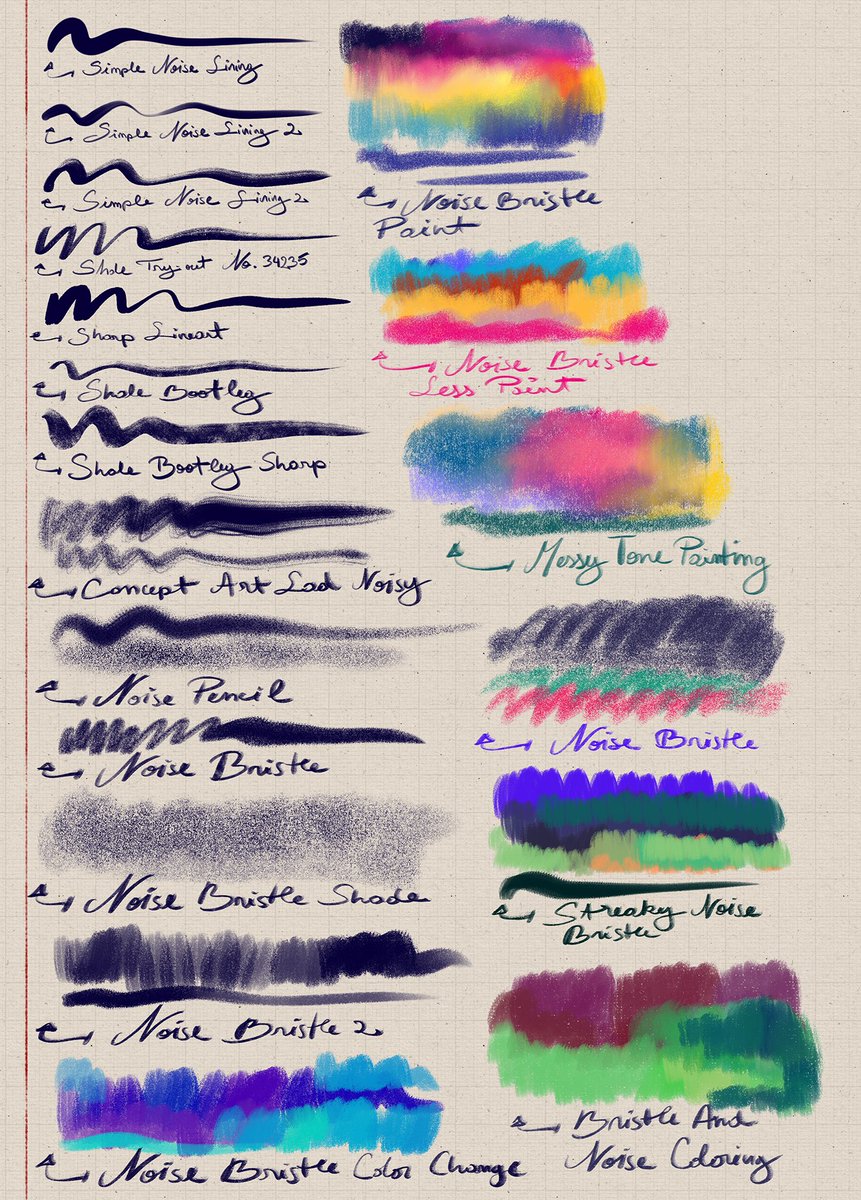 Simple Noise Lining
Simple Noise Lining 2
Simple Noise Lining 2
Shole Try-out No. 34235
Sharp Lineart
Shole Bootleg
Shole Bootleg Sharp
Concept Art Lad Noisy
Noise Pencil
Noise Bristle
Noise Bristle Shade
Noise Bristle 2
Noise Bristle Color Change
Noise Bristle
Paint
Noise Bristle
Less Paint
Messy Tone Painting
Noise Bristle
Streaky Noise
Bristle
Bristle And
Noise Coloring